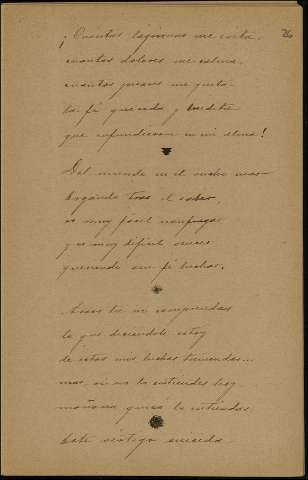 76
¡Cuantas lágrimas me costó,
cuantos dolores me calma,
cuantos pesares me quitó
la fé querida y bendita
que infundieron en mi alma!
Del mundo en el ancho mar
bogando tras el saber,
es muy fácil naufragar
y es muy difícil vencer
queriendo sin fé luchar.
Acaso tu no comprendas
lo que diciéndote estoy
de estas mis luchas tremendas...
mas, si no lo entiendes hoy
mañana quizá lo entiendas.
Este vértigo suicida